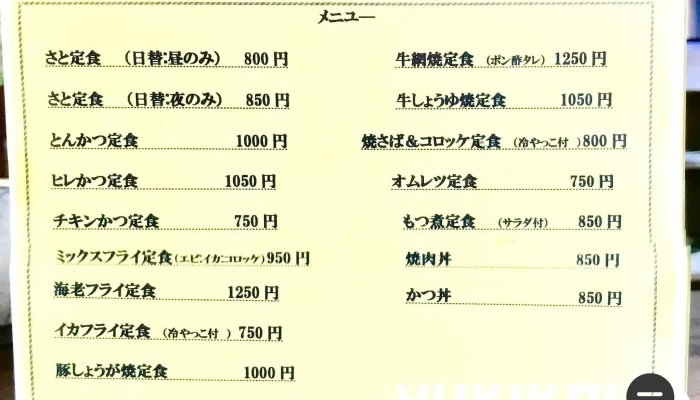 メニュー
さと定食 （日替:昼のみ） 800 円
さと定食 （日替:夜のみ） 850 円
とんかつ定食 1000 円
ヒレかつ定食 1050 円
チキンかつ定食 750 円
ミックスフライ定食(エビ:イカ:コロッケ) 950 円
海老フライ定食 1250 円
イカフライ定食 （冷やっこ付 ） 750 円
豚しょうが焼定食 1000 円
牛網焼定食 （ポン酢タレ） 1250 円
牛しょうゆ焼定食 1050 円
焼さば＆コロッケ定食 （冷やっこ付 ）800 円
オムレツ定食 750 円
もつ煮定食 （サラダ付） 850 円
焼肉丼 850 円
かつ丼 850 円